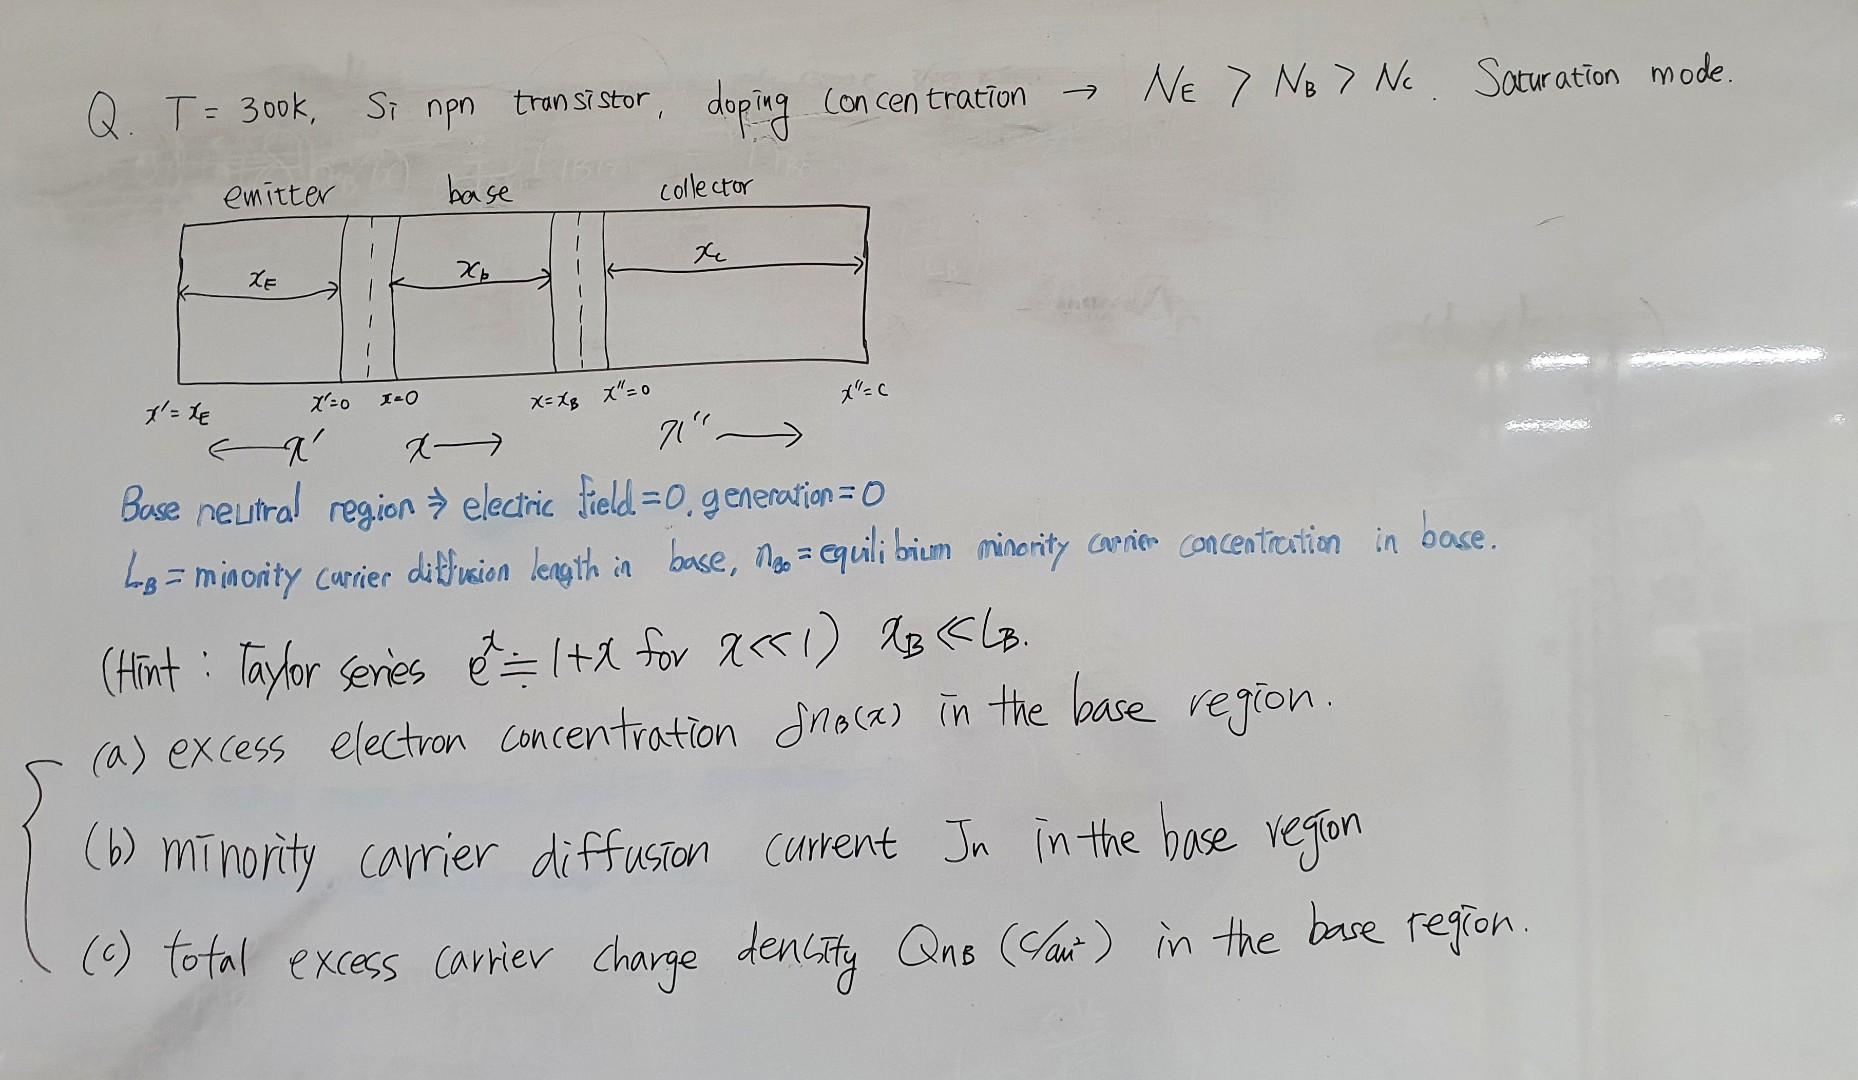 Q. T = 300k, Si npn transistor, doping concentration → N_E > N_B > N_C. Saturation mode.
emitter base collector
x_E x_b x_c
x'=x_E x'=0 x=0 x=x_B x''=0 x''=c
←x' x→ x''→
Base neutral region ⇒ electric field=0, generation=0
L_B = minority carrier diffusion length in base, n_B0 = equilibium minority carrier concentration in base.
(Hint : Taylor series e^x ≒ 1+x for x<<1) x_B << L_B.
(a) excess electron concentration δn_B(x) in the base region.
(b) minority carrier diffusion current Jn in the base region
(c) total excess carrier charge density Q_nB (C/cm²) in the base region.